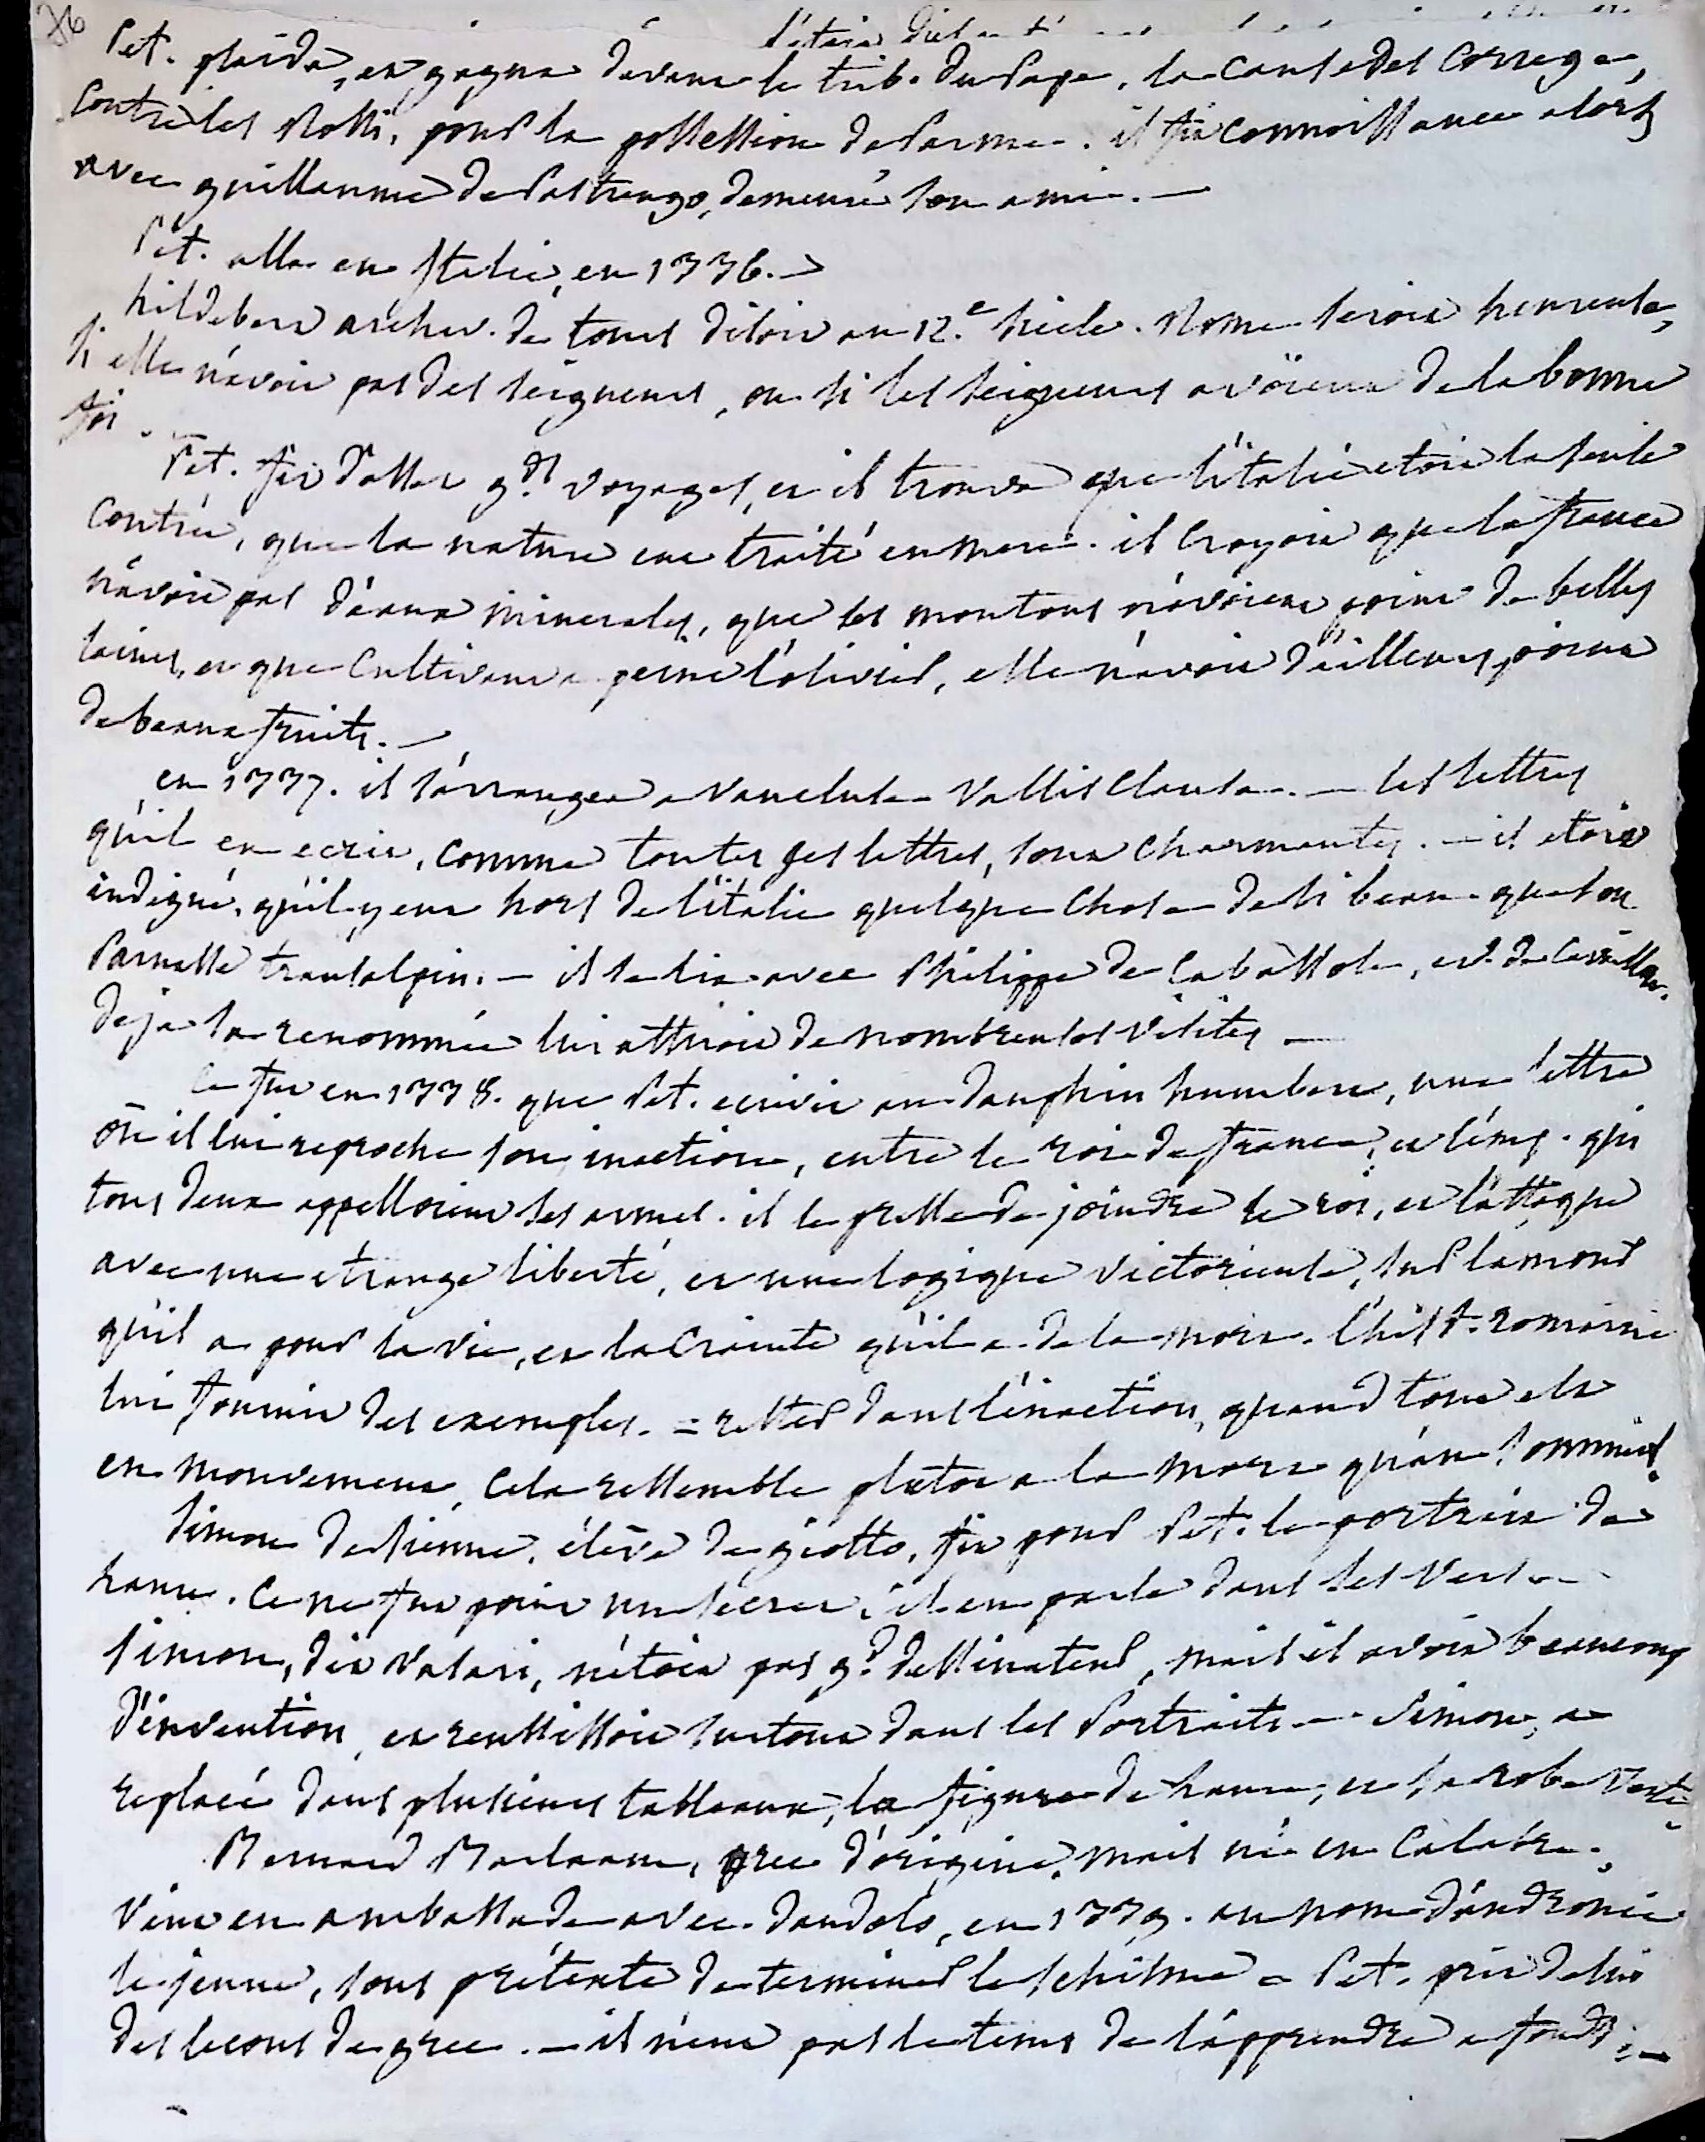 36
Pet. plaida, et gagna devant le trib. du Pape, la cause des Correge,
contre les Rossi, pour la possession de Parme. il fit connoissance alors
avec guillaume de Pastrengo, demeuré son ami. —
Pet. alla en Italie, en 1336. —
hildebert archev. de tours disoit au 12.e siecle. Rome seroit heureuse,
si elle n'avoit pas des seigneurs, ou si les seigneurs avoient de la bonne
foi.
Pet. fit d'assez g.ds voyages, et il trouva que l'italie etoit la seule
contrée, que la nature eut traité en mere. il croyoit que la france
n'avoit pas d'eaux minerales, que les moutons n'avoient point de belles
laines, et que cultivant a peine l'olivier, elle n'avoit d'ailleurs, point
de beaux fruits. —
en 1337. il s'arrangea a Vaucluse Vallis Clausa. — les lettres
qu'il en ecrit, comme toutes ses lettres, sont charmantes. — il etoit
indigné, qu'il y eut hors de l'italie quelque chose de si beau que son
Parnasse transalpin. — il se lia avec Philippe de Cabassole, ev. de Cavaillon.
deja sa renommée lui attiroit de nombreuses visites —
ce fut en 1338. que Pet. ecrivit au dauphin humbert, une lettre
où il lui reproche son inaction, entre le roi de france, et l'emp. qui
tous deux appelloient ses armes. il le presse de joindre le roi, et l'attaque
avec une etrange liberté, et une logique victorieuse, sur l'amour
qu'il a pour la vie, et la crainte qu'il a de la mort. l'hist. romaine
lui fournit des exemples. = rester dans l'inaction, quand tout est
en mouvement, cela ressemble plutot a la mort qu'au sommeil.
Simon de Sienne, élève de giotto, fit pour Pet. le portrait de
Laure. Ce ne fut point un secret, il en parle dans ses vers —
Simon, dit Vasari, n'étoit pas g.d dessinateur, mais il avoit beaucoup
d'invention, et reussissoit surtout dans les Portraits. — Simon, a
replacé dans plusieurs tableaux, la figure de Laure, et sa robe verte.
Bernard Barlaam, grec d'origine, mais né en Calabre,
vint en ambassade avec dandolo, en 1339. au nom d'andronic
le jeune, sous prétexte de terminer le schisme = Pet. prit de lui
des lecons de grec. — il n'eut pas le tems de l'apprendre a fond. —